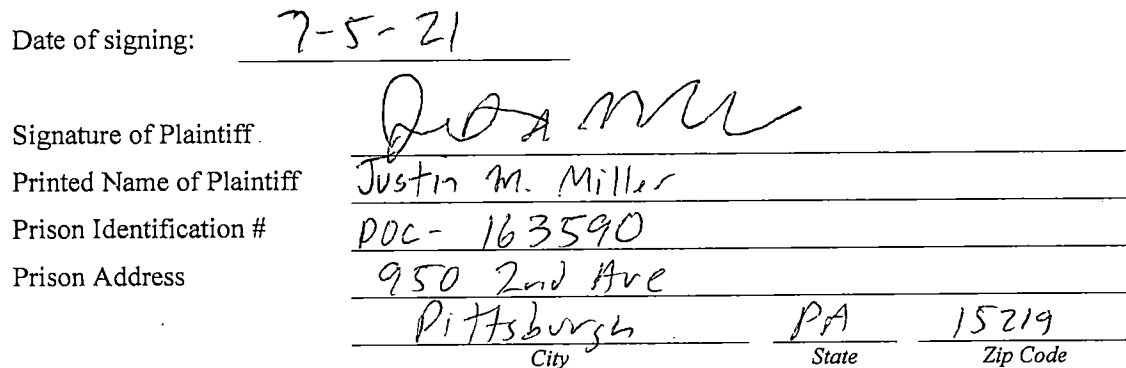 Date of signing: 7-5-21
Signature of Plaintiff
Printed Name of Plaintiff Justin M. Miller
Prison Identification # DOC- 163590
Prison Address 950 2nd Ave
Pittsburgh PA 15219
City State Zip Code